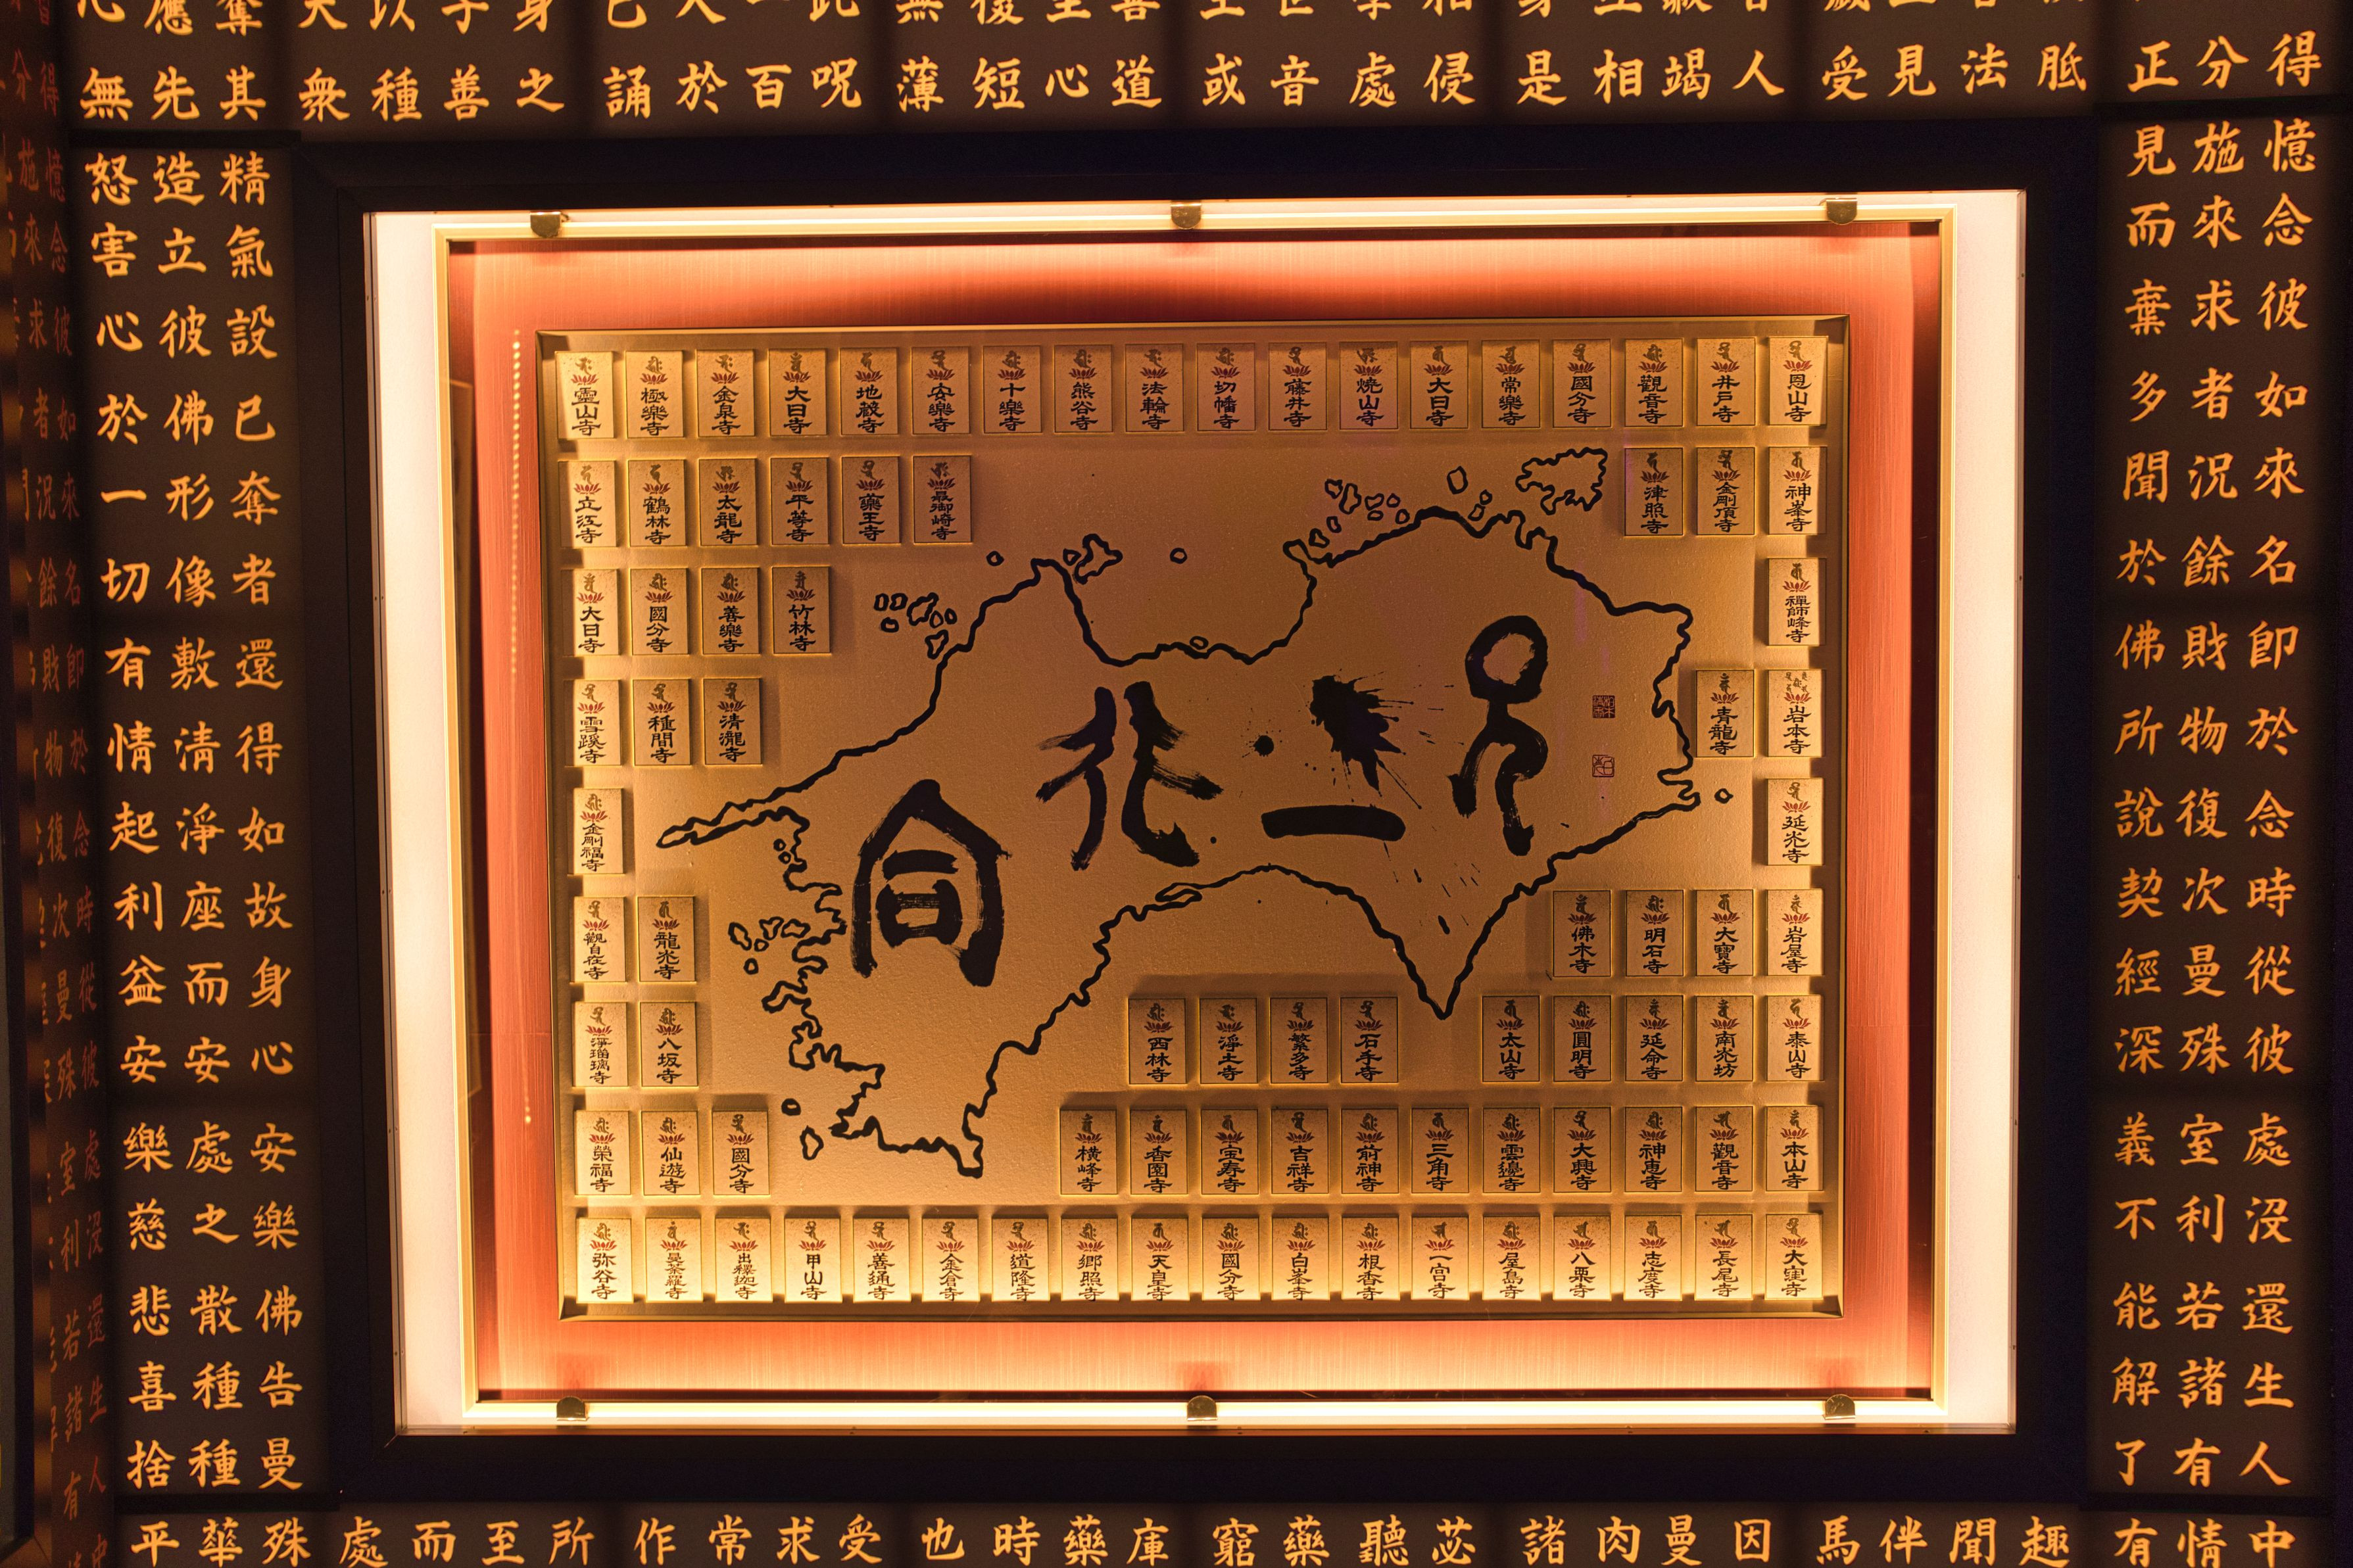 得憶念彼如來名即於念時從彼處沒還生人中
分施來求者況餘財物復次曼殊室利若諸有情
正見而棄多聞於佛所說契經深義不能解了有
胝
法
見
受
人
竭
相
是
侵
處
音
或
道
心
短
薄
呪
百
於
誦
之
善
種
衆
趣
聞
伴
馬
因
曼
肉
諸
苾
聽
藥
窮
庫
藥
時
也
受
求
常
作
所
至
而
處
其精氣設已奪者還得如故身心安樂佛告曼殊
先造立彼佛形像敷清淨座而安處之散種種華
無怒害心於一切有情起利益安樂慈悲喜捨平
靈山寺
極樂寺
金泉寺
大日寺
地蔵寺
安樂寺
十樂寺
熊谷寺
法輪寺
切幡寺
藤井寺
燒山寺
大日寺
常樂寺
國分寺
觀音寺
井戸寺
恩山寺
立江寺
鶴林寺
太龍寺
平等寺
藥王寺
最御崎寺
津照寺
金剛頂寺
神峯寺
大日寺
國分寺
善樂寺
竹林寺
禪師峰寺
雪蹊寺
種間寺
清瀧寺
青龍寺
岩本寺
金剛福寺
延光寺
觀自在寺
龍光寺
佛木寺
明石寺
大寶寺
岩屋寺
淨瑠璃寺
八坂寺
西林寺
淨土寺
繁多寺
石手寺
太山寺
圓明寺
延命寺
南光坊
泰山寺
榮福寺
仙遊寺
國分寺
橫峰寺
香園寺
宝寿寺
吉祥寺
前神寺
三角寺
雲邊寺
大興寺
神惠寺
觀音寺
本山寺
弥谷寺
曼荼羅寺
出釋迦寺
甲山寺
善通寺
金倉寺
道隆寺
鄉照寺
天皇寺
國分寺
白峯寺
根香寺
一宮寺
屋島寺
八栗寺
志度寺
長尾寺
大窪寺
同行二人